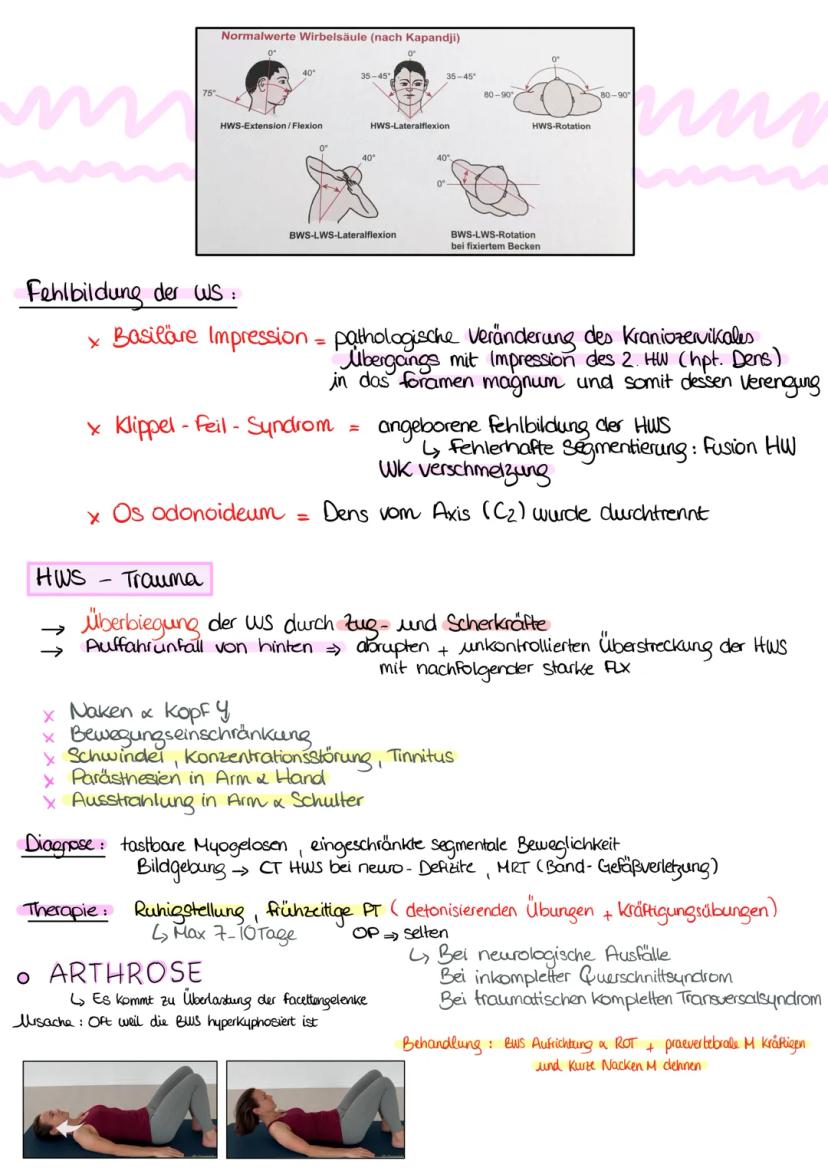 Normalwerte Wirbelsäule (nach Kapandji)
0°
75°
40°
HWS-Extension / Flexion
0°
35–45°
35–45°
HWS-Lateralflexion
0°
80–90°
80–90°
HWS-Rotation
0°
40°
BWS-LWS-Lateralflexion
40°
0°
BWS-LWS-Rotation
bei fixiertem Becken
Fehlbildung der WS :
x Basiläre Impression = pathologische Veränderung des Kraniozervikales
Übergangs mit Impression des 2. HW (hpt. Dens)
in das foramen magnum und somit dessen Verengung
x Klippel - Feil - Syndrom = angeborene Fehlbildung der HWS
↳ Fehlerhafte Segmentierung : Fusion HW
WK verschmelzung
x Os odonoideum = Dens vom Axis (C2) wurde durchtrennt
HWS - Trauma
→ Überbiegung der WS durch Zug- und Scherkräfte
→ Auffahrunfall von hinten ⇒ abrupten + unkontrollierten Überstreckung der HWS
mit nachfolgender starke FLX
x Naken & Kopf
x Bewegungseinschränkung
x Schwindel , Konzentrationsstörung , Tinnitus
x Parästhesien in Arm & Hand
x Ausstrahlung in Arm & Schulter
Diagnose : tastbare Myogelosen , eingeschränkte segmentale Beweglichkeit
Bildgebung → CT HWS bei neuro - Defizite , MRT (Band - Gefäßverletzung)
Therapie : Ruhigstellung , frühzeitige PT ( detonisierenden Übungen + Kräftigungsübungen)
↳ Max 7-10 Tage OP ⇒ selten
↳ Bei neurologische Ausfälle
Bei inkompletter Querschnittsyndrom
Bei traumatischen kompletten Transversalsyndrom
o ARTHROSE
↳ Es kommt zu Überlastung der facettengelenke
Ursache : Oft weil die BWS hyperkyphosiert ist
Behandlung : BWS Aufrichtung & ROT + praevertebrale M kräftigen
und Kurze Nacken M dehnen